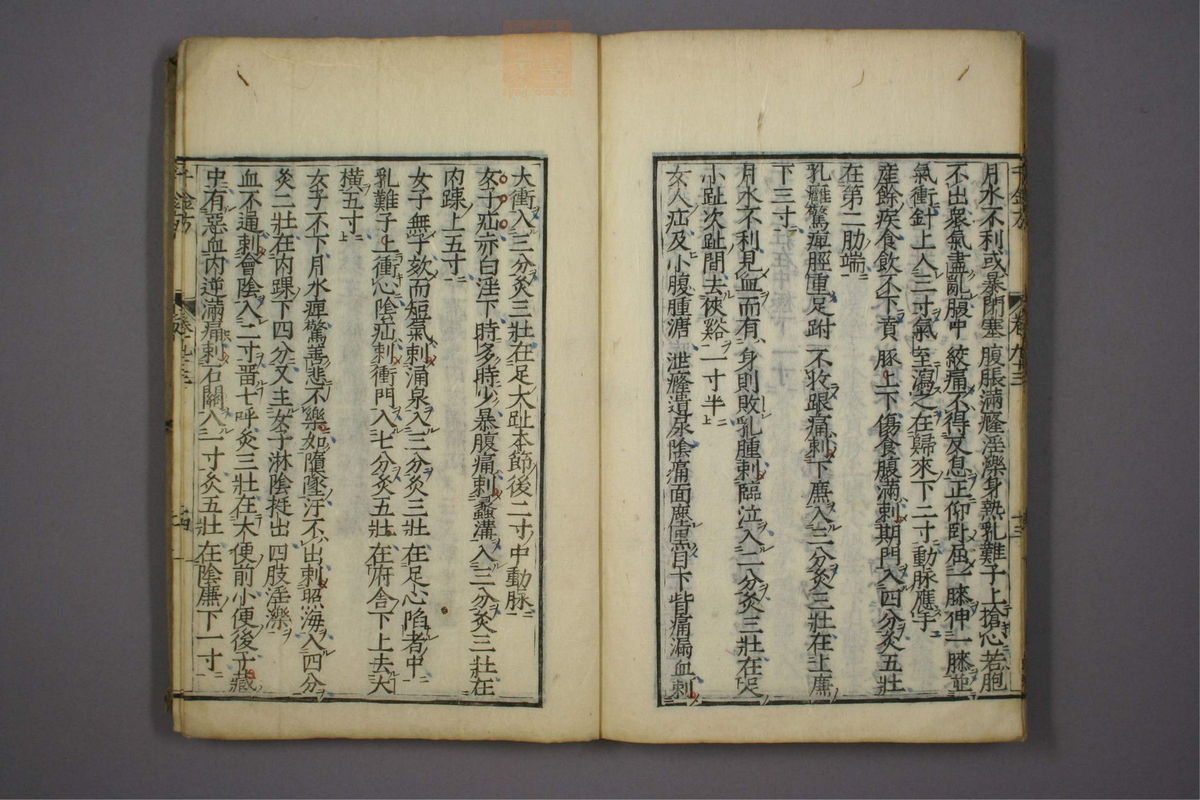 月水不利或暴閉塞腹脹滿癃淫濼身熱乳難子上搶心若胞
不出衆氣盡亂腹中絞痛不得反息正仰卧屈一膝伸一膝並
氣衝針上入三寸氣至瀉之在歸來下二寸動脉應手
産餘疾食飲不下賁豚上下傷食腹滿刺期門入四分灸五壯
在第二肋端
乳癰驚痺脛重足跗不收跟痛刺下廉入三分灸三壯在上廉
下三寸
月水不利見血而有身則敗乳腫刺臨泣入二分灸三壯在足
小趾次趾間去俠谿一寸半
女人疝及小腹腫溏泄癃遺尿陰痛面塵黑目下眥痛漏血刺
大衝入三分灸三壯在足大趾本節後二寸中動脉
女子疝赤白淫下時多時少暴腹痛刺蠡溝入三分灸三壯在
内踝上五寸
女子無子欬而短氣刺涌泉入三分灸三壯在足心陷者中
乳難子上衝心陰疝刺衝門入七分灸五壯在府舍下上去大
横五寸
女子不下月水痺驚善悲不樂如墮墜汗不出刺照海入四分
灸二壯在内踝下四分又主女子淋陰挺出四肢淫濼
血不通刺會陰入二寸畱七呼灸三壯在大便前小便後子藏
中有惡血内逆滿痛刺石關入一寸灸五壯在陰廉下一寸